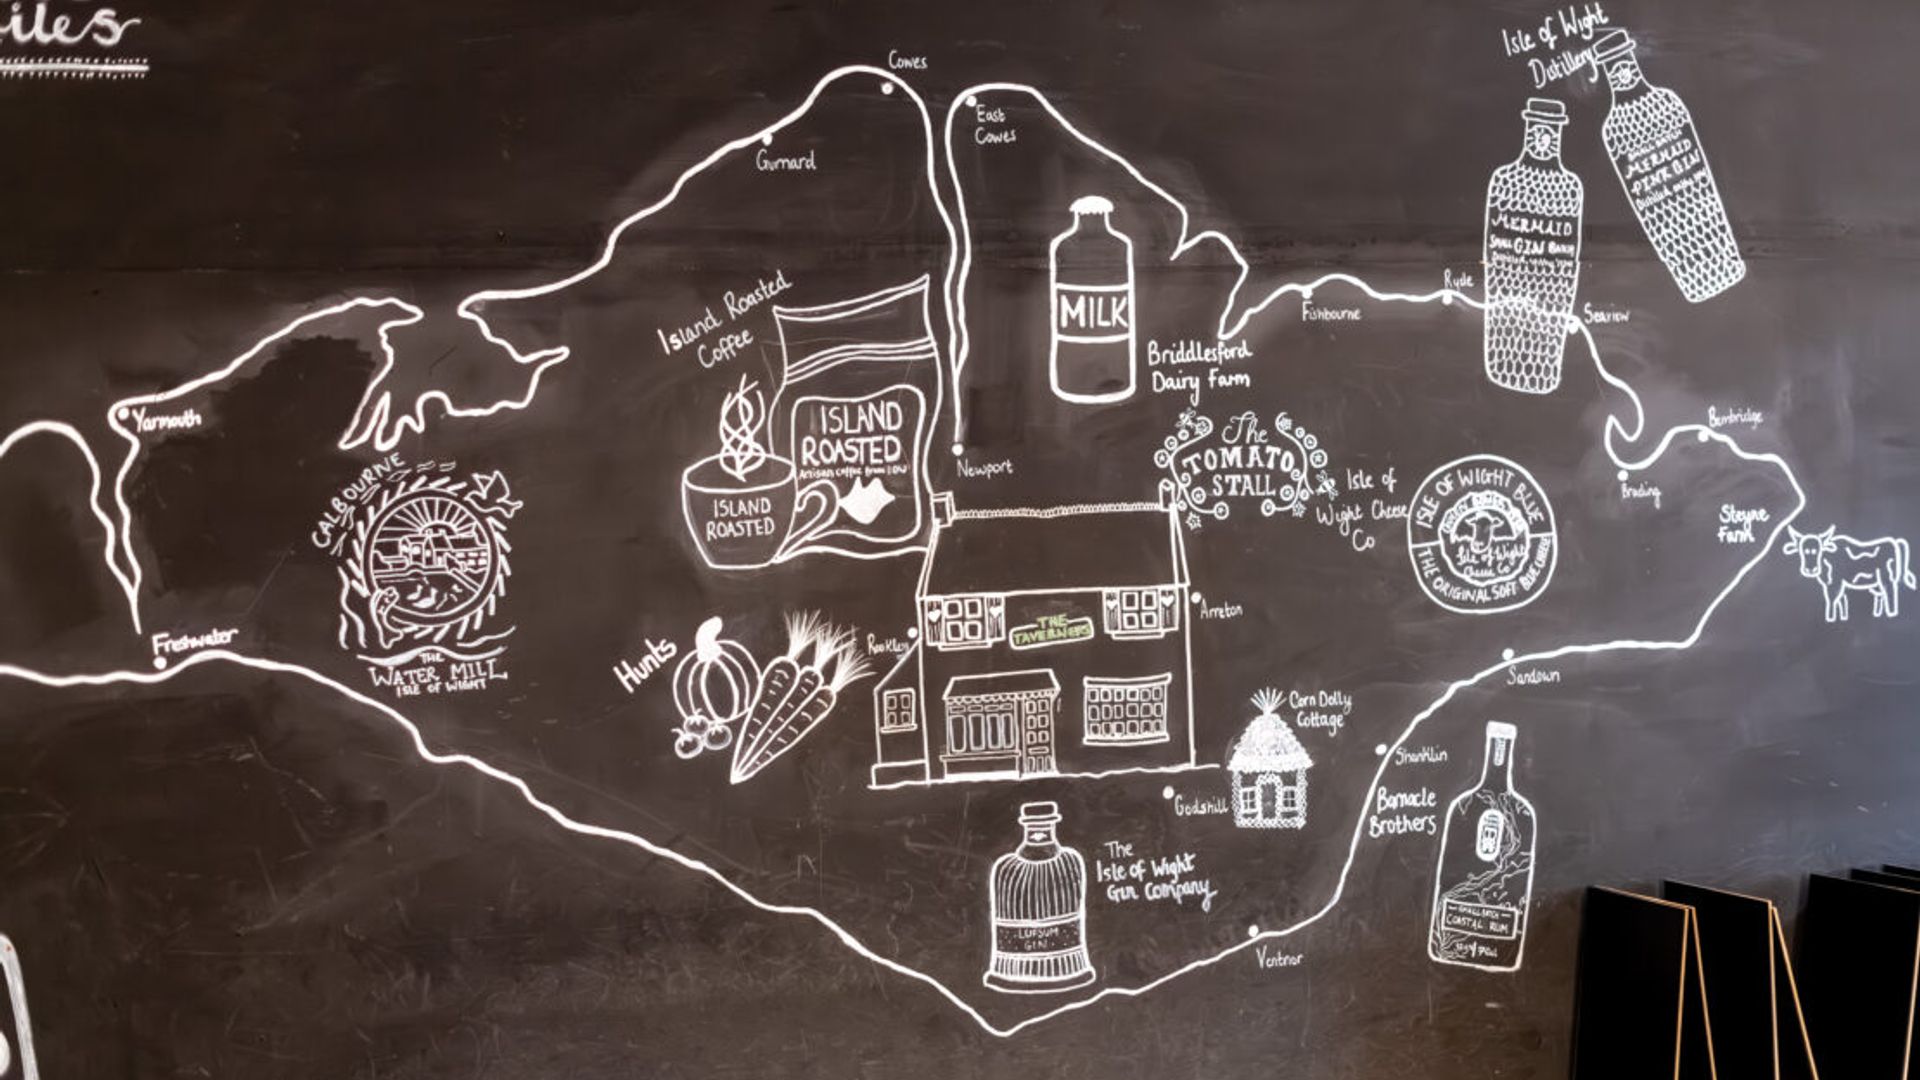 iles
Cowes
East
Cowes
Gurnard
Isle of Wight
Distillery
SMALL BATCH
MERMAID
PINK GIN
MERMAID
SMALL GIN BATCH
Island Roasted
Coffee
MILK
Briddlesford
Dairy Farm
Fishbourne
Ryde
Seaview
Yarmouth
ISLAND
ROASTED
Artisan coffee from IOW
ISLAND
ROASTED
Newport
The
TOMATO
STALL
Isle of
Wight Cheese
Co
ISLE OF WIGHT BLUE
Isle of Wight
Cheese Co
THE ORIGINAL SOFT BLUE CHEESE
Bembridge
Brading
Steyne
Farm
CALBOURNE
THE
WATER MILL
ISLE OF WIGHT
Freshwater
Hunts
Rookley
THE
TAVERNERS
Arreton
Sandown
Corn Dolly
Cottage
Shanklin
Godshill
Barnacle
Brothers
SMALL BATCH
COASTAL RUM
The
Isle of Wight
Gin Company
GIN
Ventnor